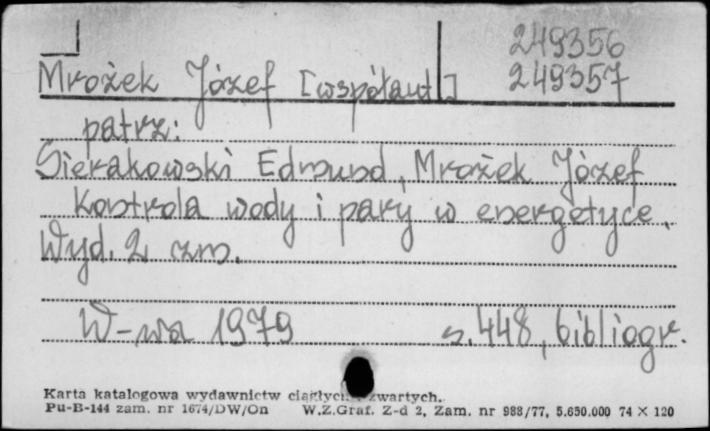 249356
Mrożek Józef [współaut.] 249357
patrz:
Sierakowski Edmund, Mrożek Józef
Kontrola wody i pary w energetyce.
Wyd. 2 zm.
W-wa 1979 s. 448, bibliogr.
Karta katalogowa wydawnictw ciągłych i zwartych.
Pu-B-144 zam. nr 1674/DW/On W.Z.Graf. Z-d 2, Zam. nr 988/77, 5.650.000 74 X 120